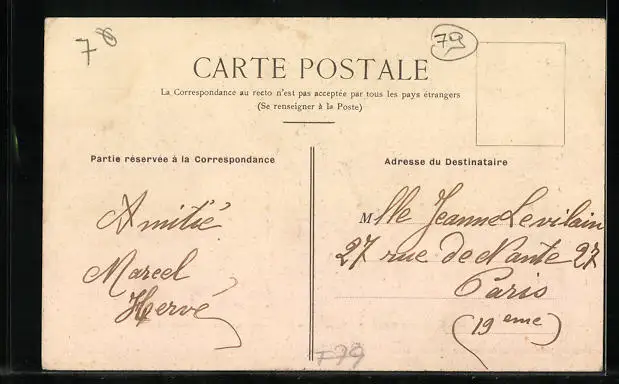 78
79
CARTE POSTALE
La Correspondance au recto n'est pas acceptée par tous les pays étrangers
(Se renseigner à la Poste)
Partie réservée à la Correspondance
Amitié
Marcel
Hervé
Adresse du Destinataire
Mlle Jeanne Levilain
27 rue de Nante 27
Paris
(19eme)
F79